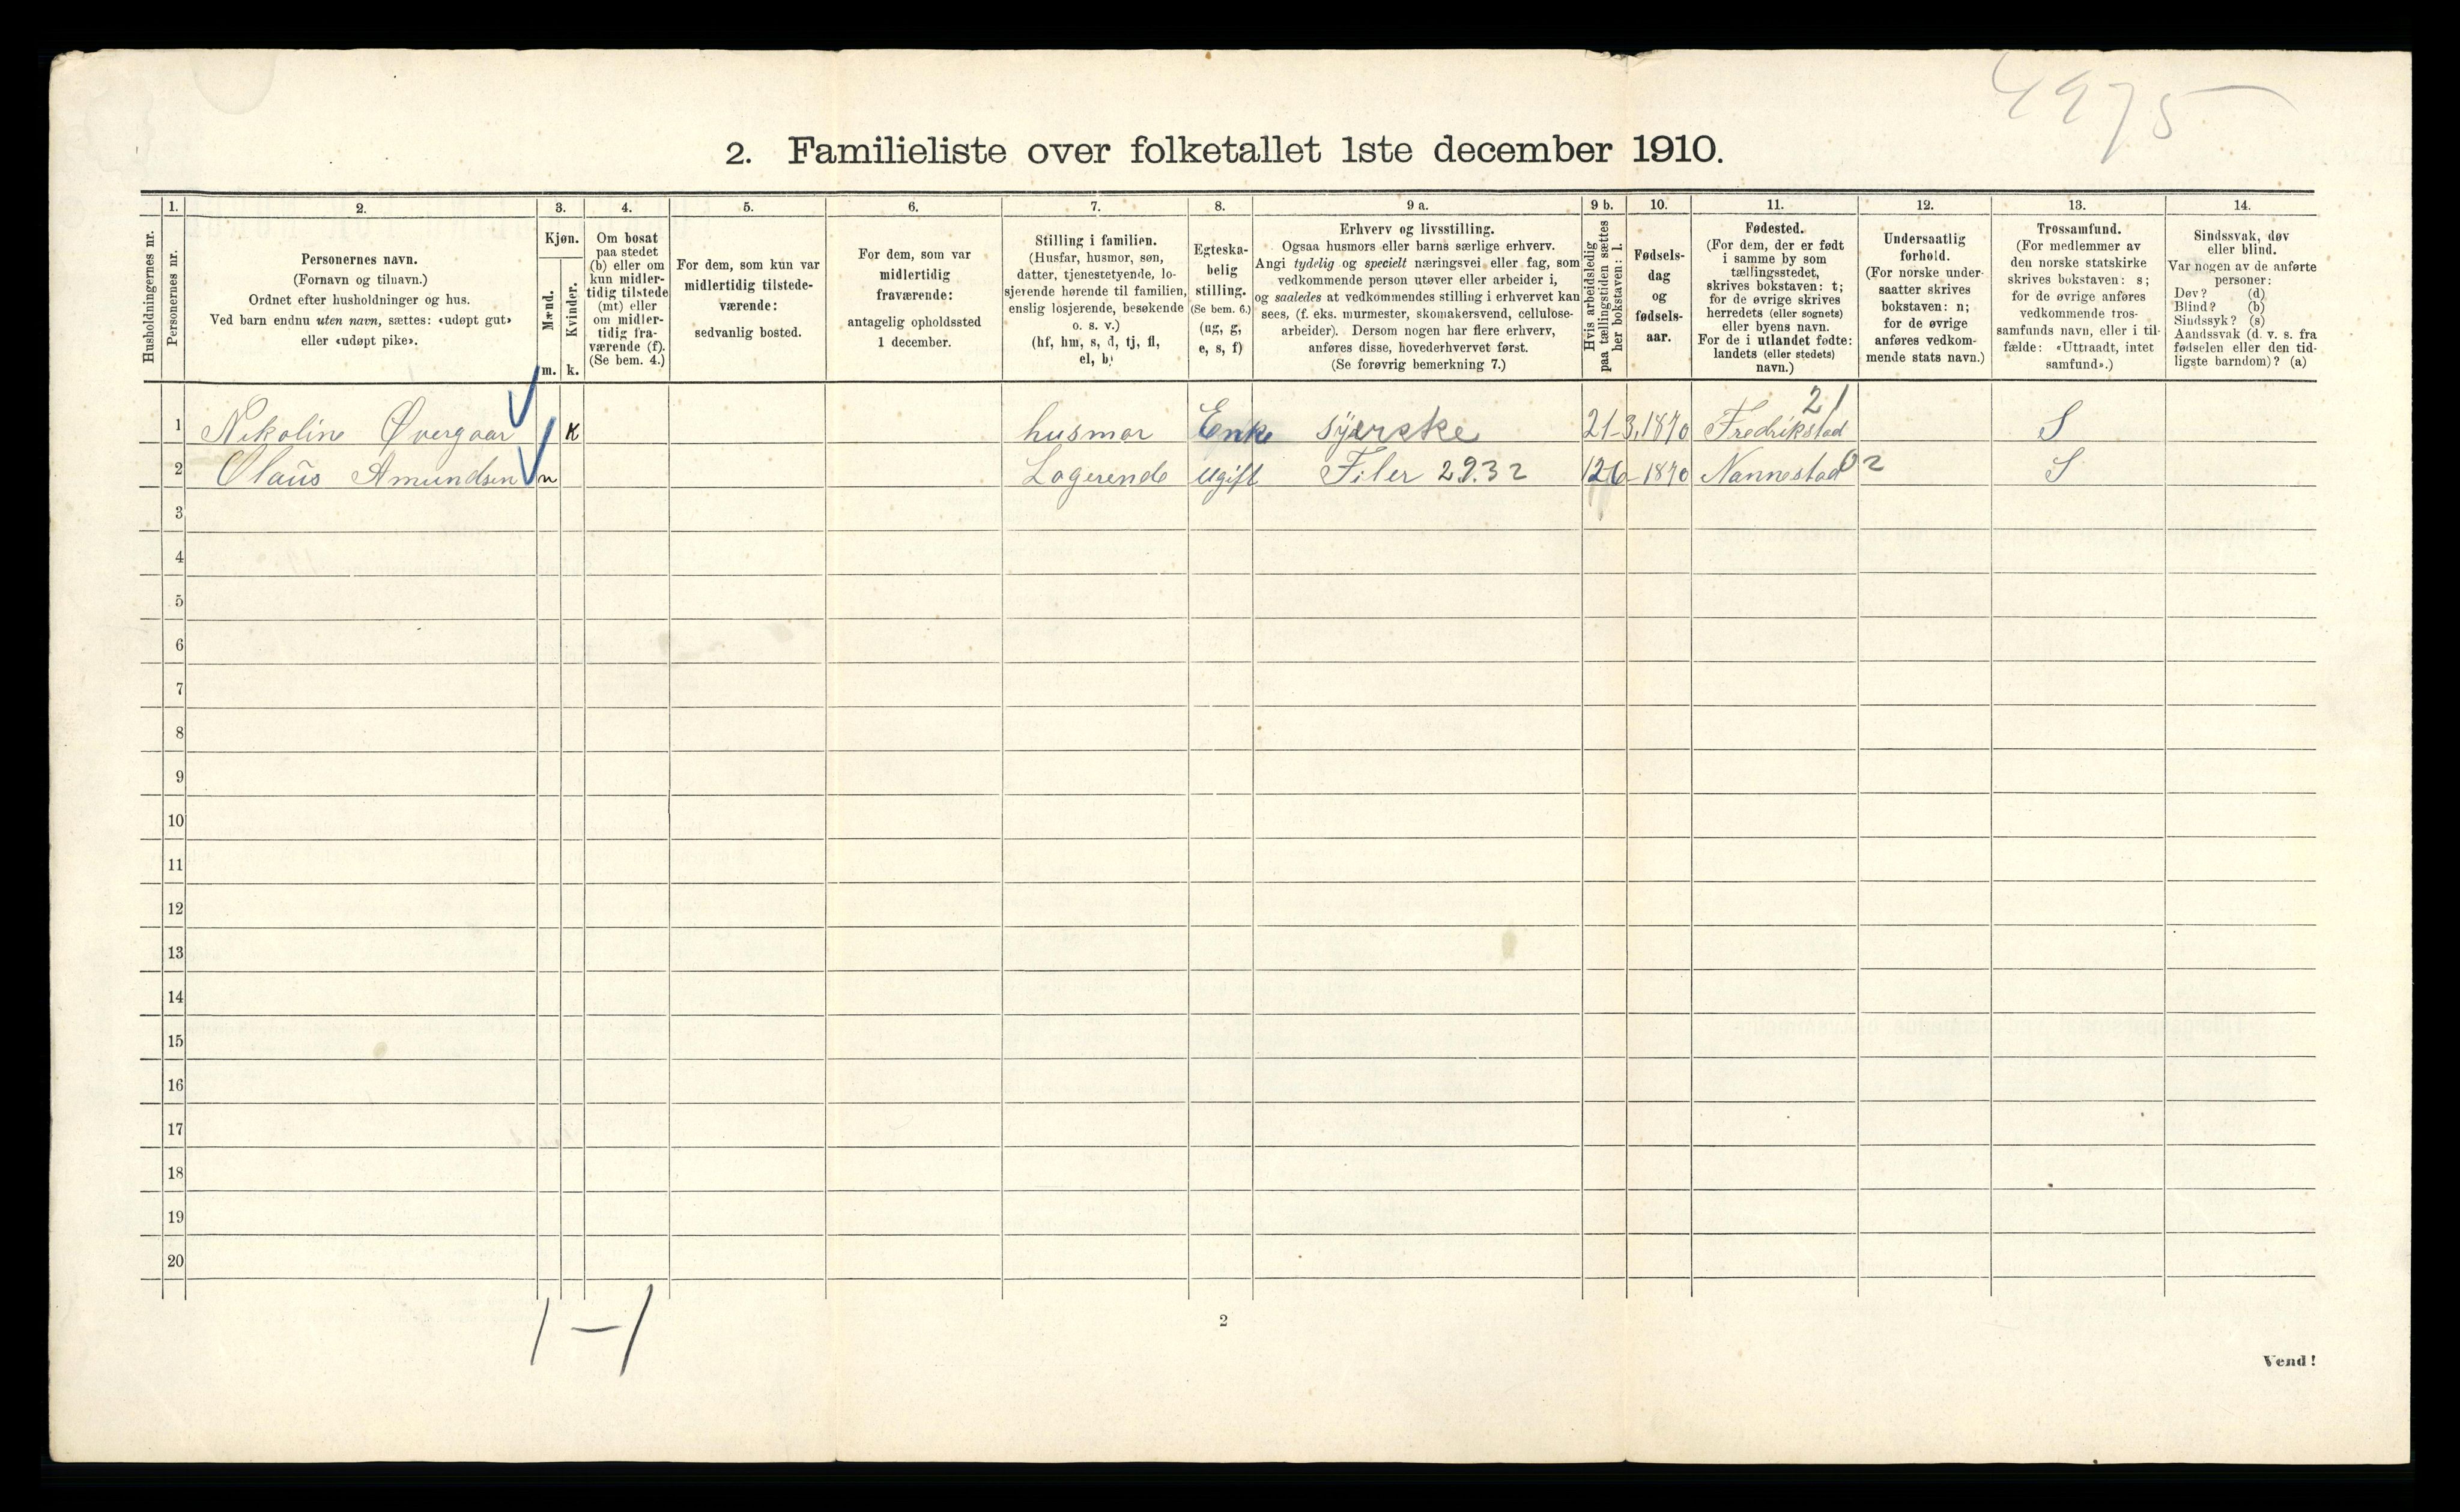 4975
2. Familieliste over folketallet 1ste december 1910.
Husholdningernes nr.
1.
Personernes nr.
2.
Personernes navn.
(Fornavn og tilnavn.)
Ordnet efter husholdninger og hus.
Ved barn endnu uten navn, sættes: «udøpt gut»
eller «udøpt pike».
3.
Kjøn.
Mænd.
m.
Kvinder.
k.
4.
Om bosat
paa stedet
(b) eller om
kun midler-
tidig tilstede
(mt) eller
om midler-
tidig fra-
værende (f).
(Se bem. 4.)
5.
For dem, som kun var
midlertidig tilstede-
værende:
sedvanlig bosted.
6.
For dem, som var
midlertidig
fraværende:
antagelig opholdssted
1 december.
7.
Stilling i familien.
(Husfar, husmor, søn,
datter, tjenestetyende, lo-
sjerende hørende til familien,
enslig losjerende, besøkende
o. s. v.)
(hf, hm, s, d, tj, fl,
el, b)
8.
Egteska-
belig
stilling.
(Se bem. 6.)
(ug, g,
e, s, f)
9 a.
Erhverv og livsstilling.
Ogsaa husmors eller barns særlige erhverv.
Angi tydelig og specielt næringsvei eller fag, som
vedkommende person utøver eller arbeider i,
og saaledes at vedkommendes stilling i erhvervet kan
sees, (f. eks. murmester, skomakersvend, cellulose-
arbeider). Dersom nogen har flere erhverv,
anføres disse, hovederhvervet først.
(Se forøvrig bemerkning 7.)
9 b.
Hvis arbeidsledig
paa tællingstiden sættes
her bokstaven: l.
10.
Fødsels-
dag
og
fødsels-
aar.
11.
Fødested.
(For dem, der er født
i samme by som
tællingsstedet,
skrives bokstaven: t;
for de øvrige skrives
herredets (eller sognets)
eller byens navn.
For de i utlandet fødte:
landets (eller stedets)
navn.)
12.
Undersaatlig
forhold.
(For norske under-
saatter skrives
bokstaven: n;
for de øvrige
anføres vedkom-
mende stats navn.)
13.
Trossamfund.
(For medlemmer av
den norske statskirke
skrives bokstaven: s;
for de øvrige anføres
vedkommende tros-
samfunds navn, eller i til-
fælde: «Uttraadt, intet
samfund».)
14.
Sindssvak, døv
eller blind.
Var nogen av de anførte
personer:
Døv? (d)
Blind? (b)
Sindssyk? (s)
Aandssvak (d. v. s. fra
fødselen eller den tid-
ligste barndom)? (a)
1 Nikoline Øvergaar K husmor Enke syerske 21-3.1870 Fredrikstad 21 S
2 Olaüs Amundsen m Logerende Ugift Filer 29.32 12 6-1870 Nannestad 02 S
3
4
5
6
7
8
9
10
11
12
13
14
15
16
17
18
19
20
1-1
2
Vend!